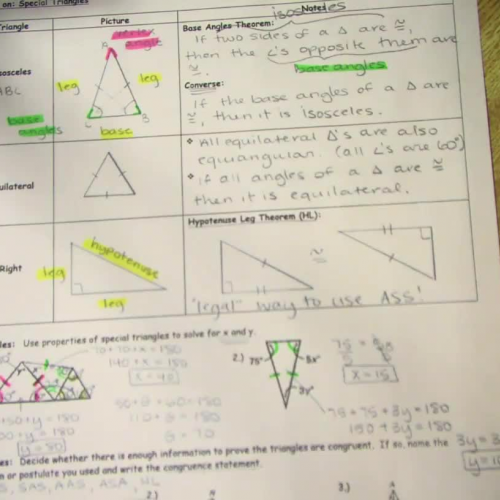 on: Special Triangles
riangle
Picture
Notes
isosceles
vertex angle
A
Base Angles Theorem:
If two sides of a Δ are ≅,
then the ∠'s opposite them are
≅.
base angles
osceles
ABC
leg
leg
base angles
C
B
base
Converse:
If the base angles of a Δ are
≅, then it is isosceles.
uilateral
All equilateral Δ's are also
equiangular. (all ∠'s are 60°)
If all angles of a Δ are ≅
then it is equilateral.
Right
leg
hypotenuse
leg
Hypotenuse Leg Theorem (HL):
≅
"legal" way to use ASS!
les: Use properties of special triangles to solve for x and y.
70+70+x=180
140+x=180
x=40
50+θ+60=180
110+θ=180
θ=70
+50+y=180
00+y=180
y=80
2.)
75°
5x°
3y°
x=15
75+75+3y=180
150+3y=180
3y=3
y=1
es: Decide whether there is enough information to prove the triangles are congruent. If so, name the
m or postulate you used and write the congruence statement.
S, SAS, AAS, ASA, HL
2.)
3.)